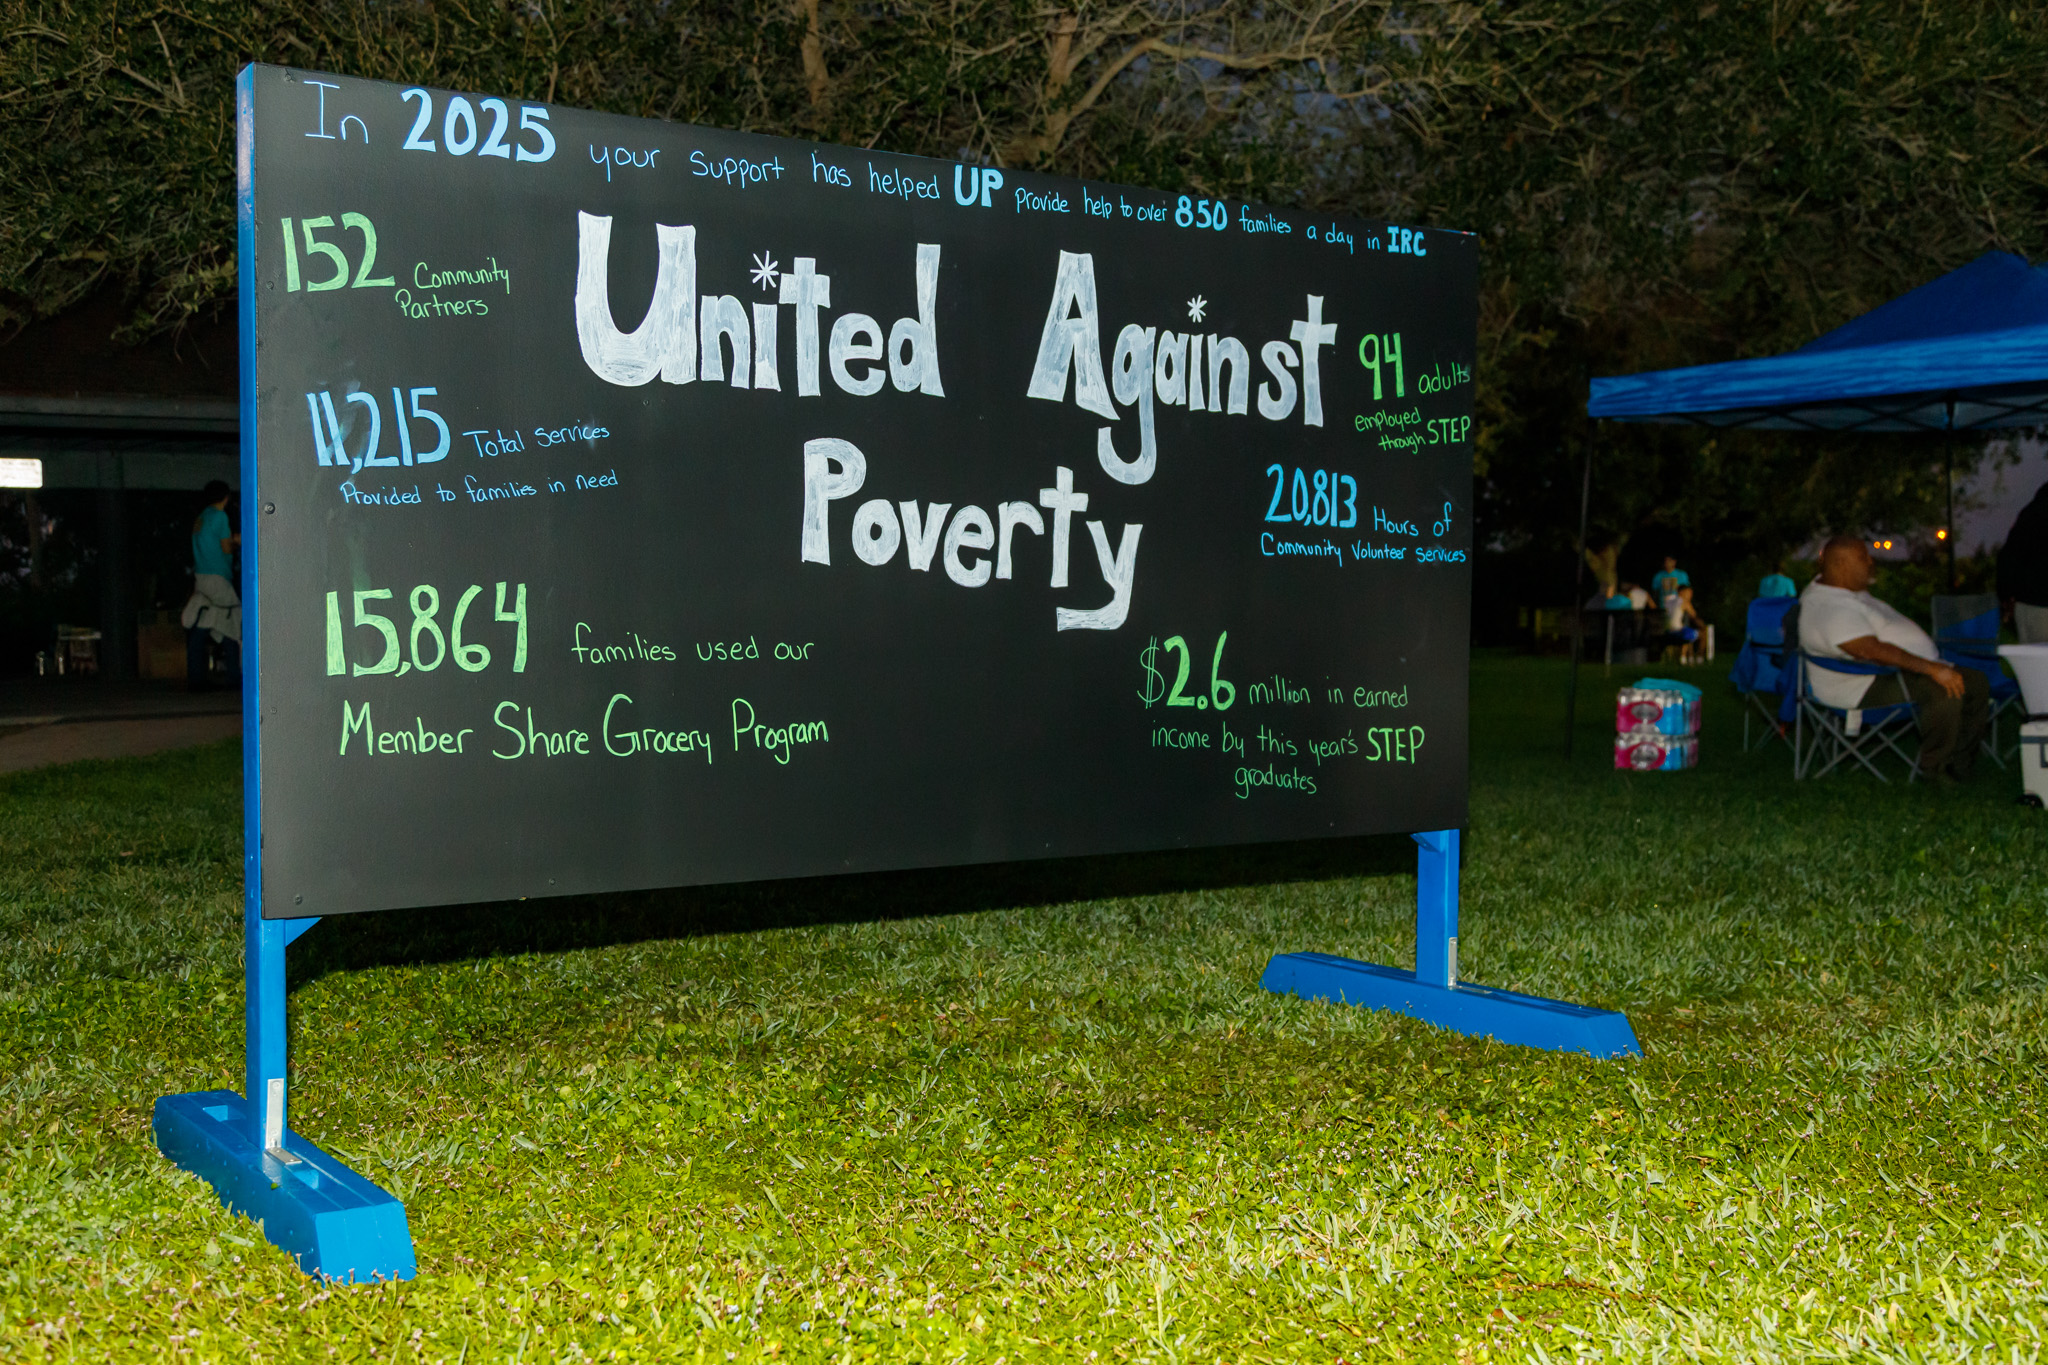 In 2025 your support has helped UP provide help to over 850 families a day in IRC
152 Community
Partners
United Against
Poverty
94 adults
employed
through STEP
11,215 Total services
Provided to families in need
20,813 Hours of
Community Volunteer services
15,864 families used our
Member Share Grocery Program
$2.6 million in earned
income by this year's STEP
graduates